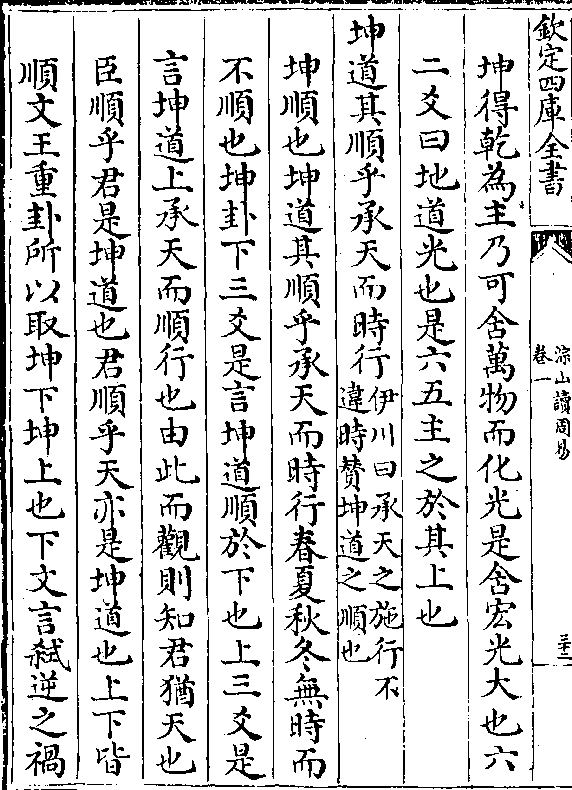 欽定四庫全書
淙山讀周易
卷一
三十二
坤得乾為主乃可含萬物而化光是含宏光大也六
二爻曰地道光也是六五主之於其上也
坤道其順乎承天而時行伊川曰承天之施行不
違時贊坤道之順也
坤順也坤道其順乎承天而時行春夏秋冬無時而
不順也坤卦下三爻是言坤道順於下也上三爻是
言坤道上承天而順行也由此而觀則知君猶天也
臣順乎君是坤道也君順乎天亦是坤道也上下皆
順文王重卦所以取坤下坤上也下文言弑逆之禍